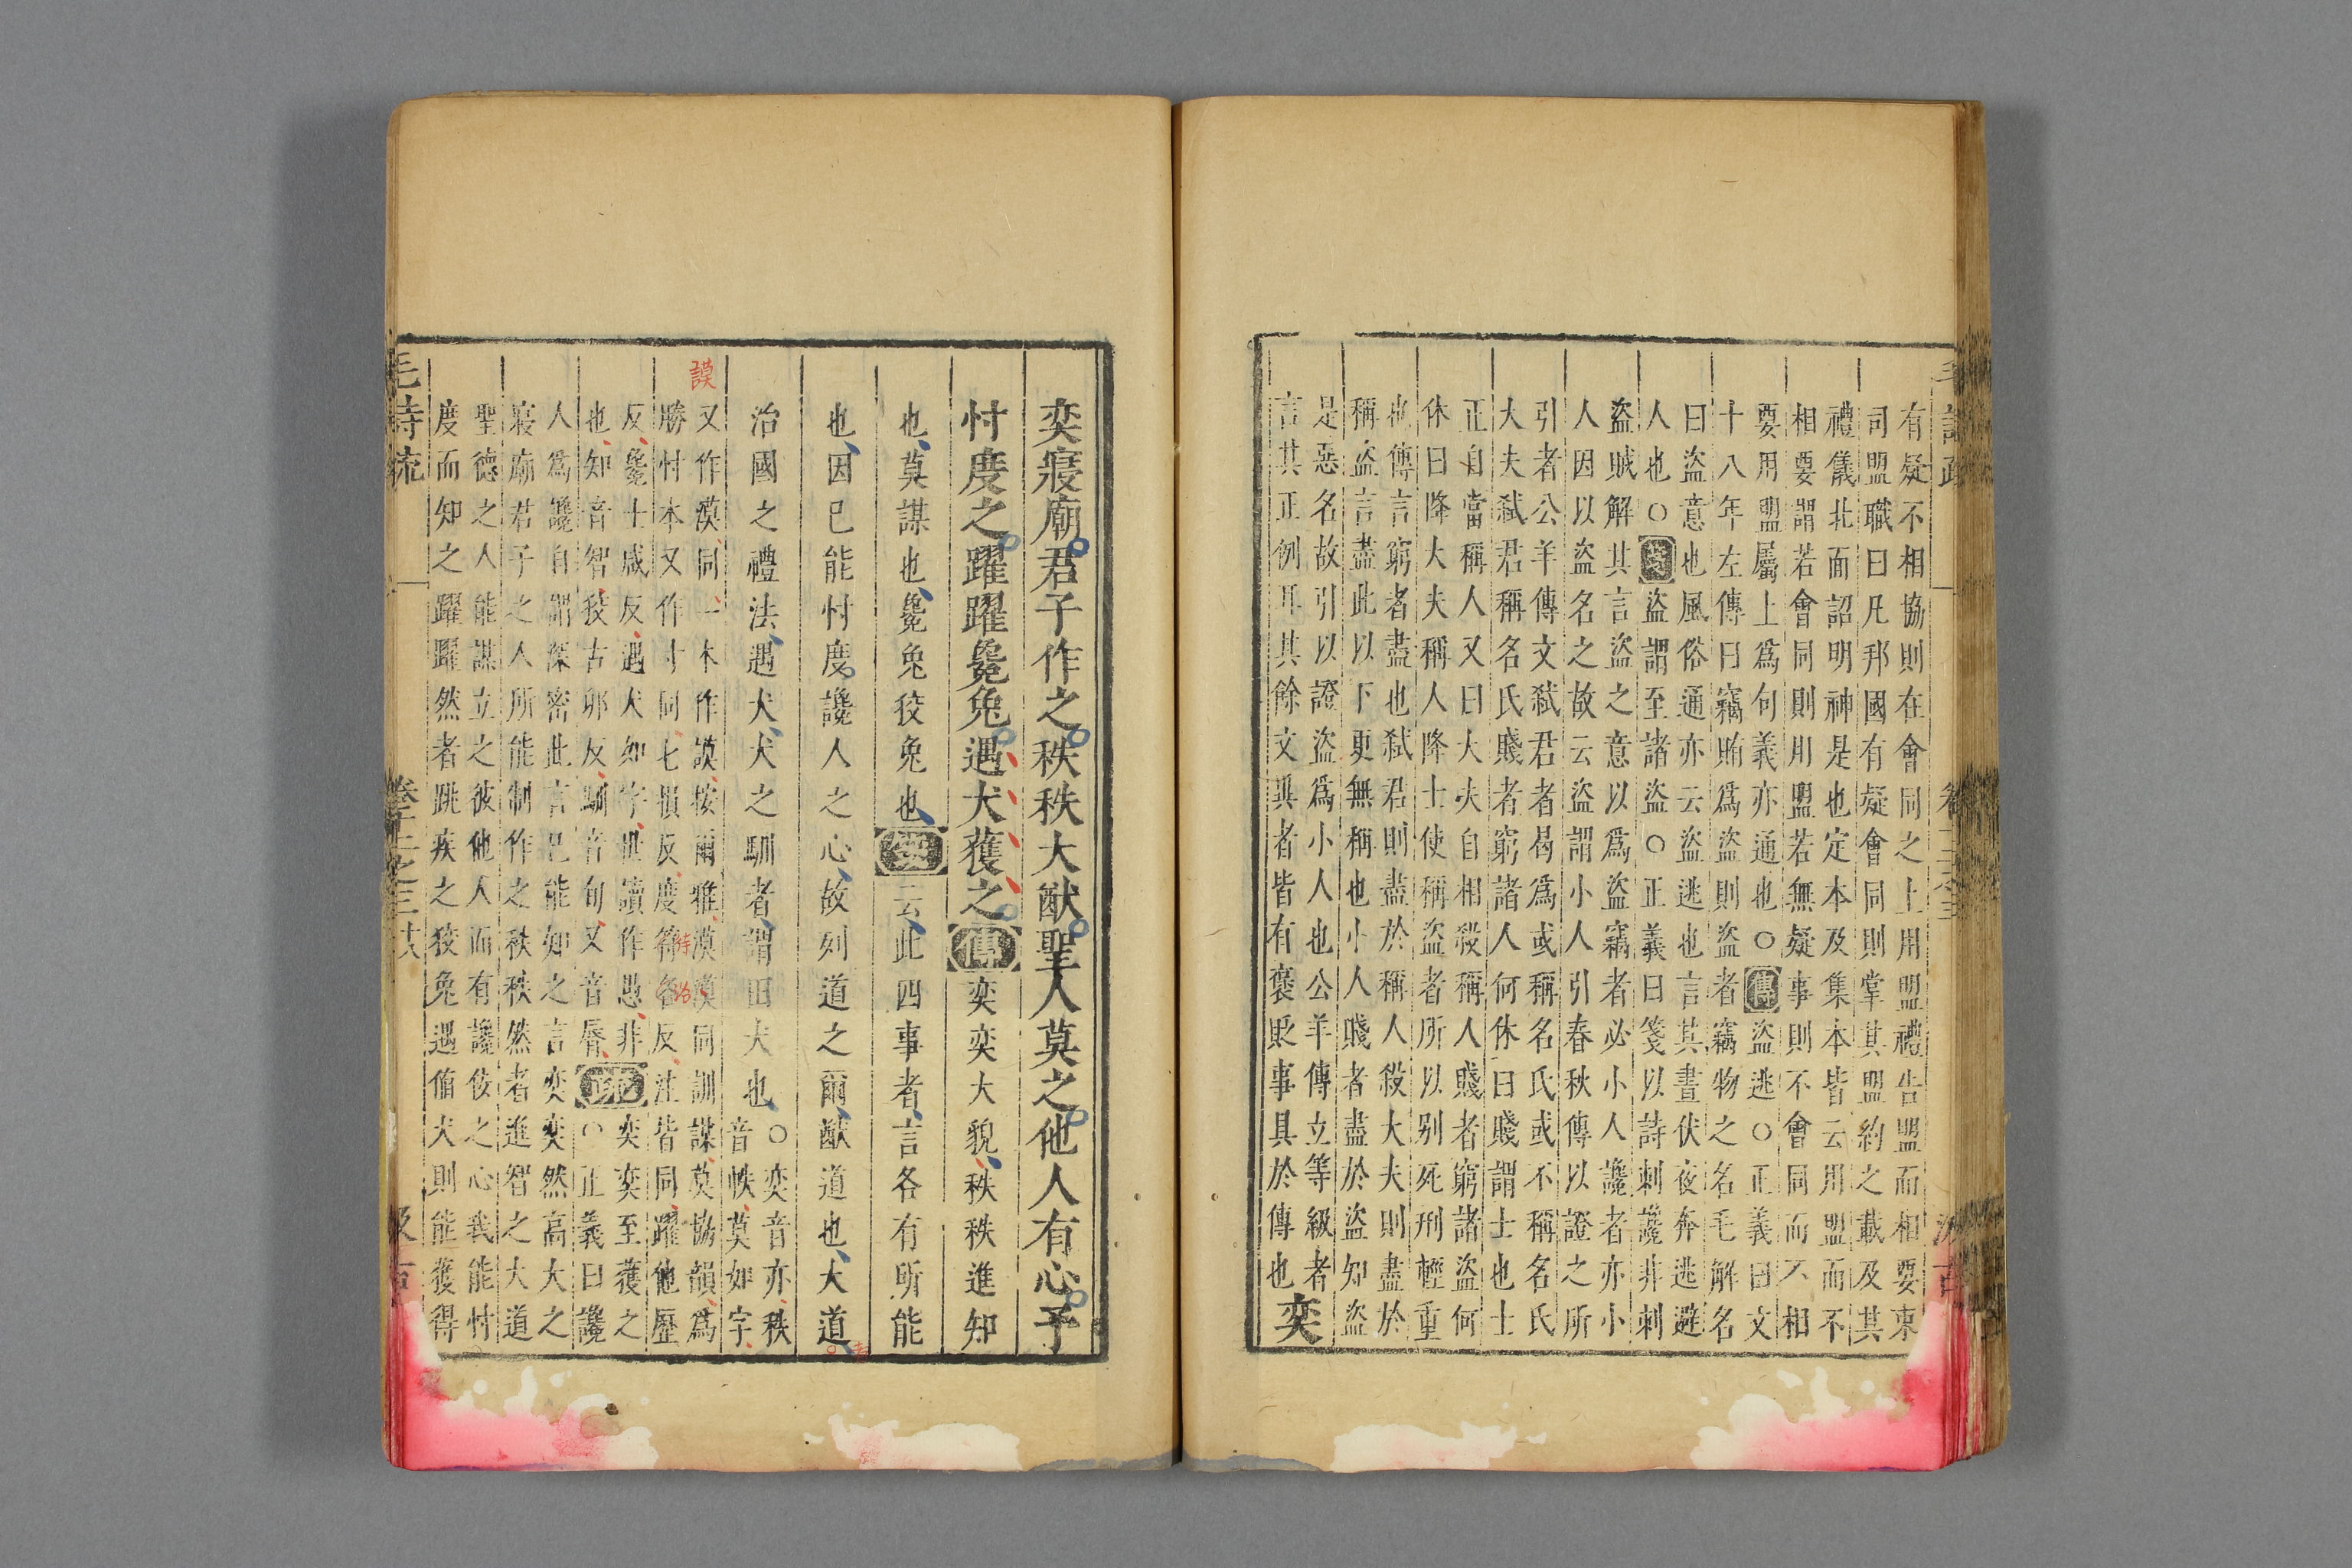 毛詩疏
有疑不相協則在會同之上用盟禮告盟而相要束
司盟職曰凡邦國有疑會同則掌其盟約之載及其
禮儀北面詔明神是也定本及集本皆云用盟而不
相要謂若會同則用盟若無疑事則不會同而不相
要用盟屬上爲句義亦通也○傳盜逃○正義曰文
十八年左傳曰竊賄爲盜則盜者竊物之名毛解名
曰盜意也風俗通亦云盜逃也言其晝伏夜奔逃避
人也○箋盜謂至諸盜○正義曰箋以詩刺讒非刺
盜賊解其言盜之意以爲盜竊者必小人讒者亦小
人因以盜名之故云盜謂小人引春秋傳以證之所
引者公羊傳文弑君者曷爲或稱名氏或不稱名氏
大夫弑君稱名氏賤者窮諸人何休曰賤謂士也士
正自當稱人又曰大夫自相殺稱人賤者窮諸盜何
休曰降大夫稱人降士使稱盜者所以别死刑輕重
也傳言窮者盡也弑君則盡於稱人殺大夫則盡於
稱盜言盡此以下更無稱也小人賤者盡於盜知盜
是惡名故引以證盜爲小人也公羊傳立等級者
言其正例耳其餘文與者皆有褒貶事具於傳也
奕
奕寢廟君子作之秩秩大猷聖人莫之他人有心予
忖度之躍躍毚兔遇犬獲之傳奕奕大貌秩秩進知
也莫謀也毚兔狡兔也箋云此四事者言各有所能
也因己能忖度讒人之心故列道之爾猷道也大道
治國之禮法遇犬犬之馴者謂田犬也○
奕音亦秩
音帙莫如字
謨
又作漠同一本作謨按爾雅漠謨同訓謀莫協韻爲
勝忖本又作寸同七損反度待洛反注皆同躍他歷
反毚士咸反遇犬如字世讀作愚非
也知音智狡古卯反馴音旬又音脣
疏
奕奕至獲之
○正義曰讒
人爲讒自謂深密此言己能知之言奕奕然高大之
寢廟君子之人所能制作之秩秩然者進智之大道
聖德之人能謀立之彼他人而有讒佞之心我能忖
度而知之躍躍然者跳疾之狡兔遇俻犬則能獲得
毛詩疏
卷十二之三
十八
汲古